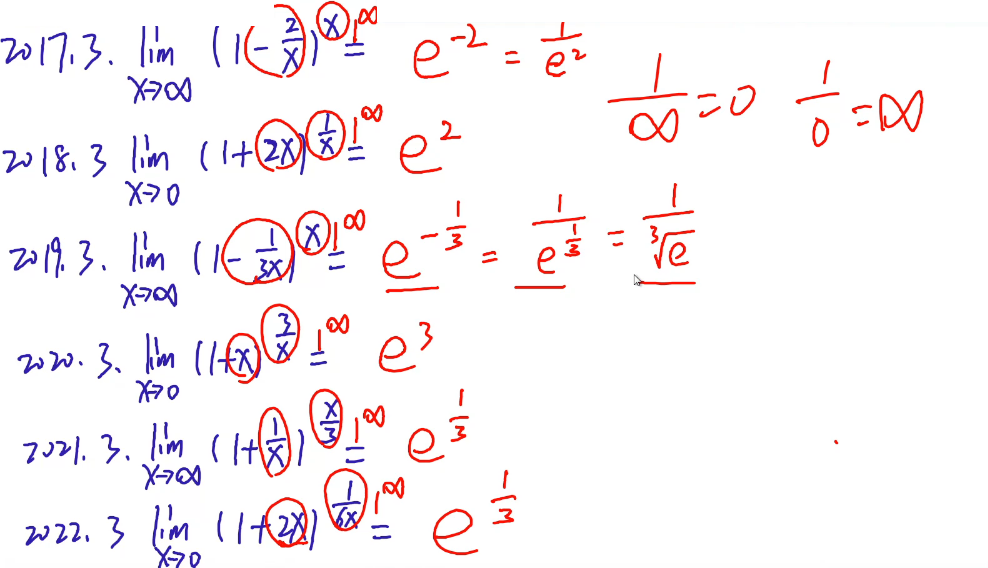 2017.3. lim x→∞ (1 - 2/x)^x = 1^∞ e^-2 = 1/e^2
1/∞ = 0 1/0 = ∞
2018.3 lim x→0 (1 + 2x)^(1/x) = 1^∞ e^2
2019.3. lim x→∞ (1 - 1/3x)^x = 1^∞ e^(-1/3) = 1/e^(1/3) = 1/∛e
2020.3. lim x→0 (1 + x)^(3/x) = 1^∞ e^3
2021.3. lim x→∞ (1 + 1/x)^(x/3) = 1^∞ e^(1/3)
2022.3 lim x→0 (1 + 2x)^(1/6x) = 1^∞ e^(1/3)